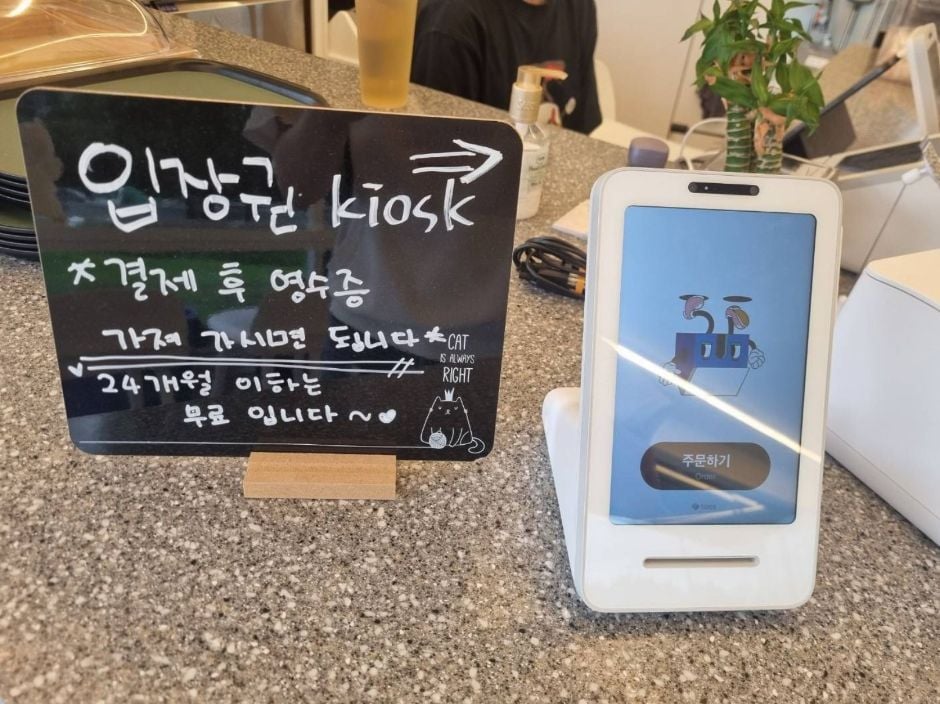 입장권 kiosk
*결제 후 영수증
가져 가시면 됩니다*
24개월 이하는
무료 입니다~
CAT
IS ALWAYS
RIGHT
주문하기
Order
toss